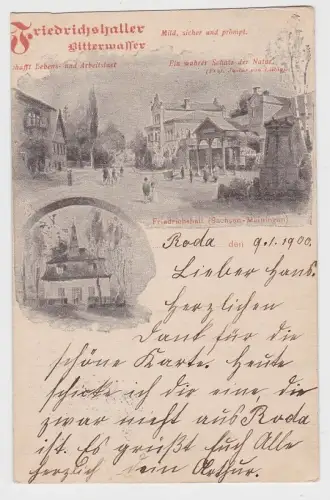 Friedrichshaller
Bitterwasser
Mild, sicher und prompt.
schafft Lebens- und Arbeitslust
Ein wahrer Schatz der Natur.
(Prof. Justus von Liebig)
Friedrichshall (Sachsen-Meiningen)
Roda den 9.1.1900.
Lieber Hans.
Herzlichen
Dank für die
schöne Karte. Heute
schicke ich dir eine, die
zwar nicht aus Roda
ist. Es grüßt Euch Alle
herzlich dein Arthur.